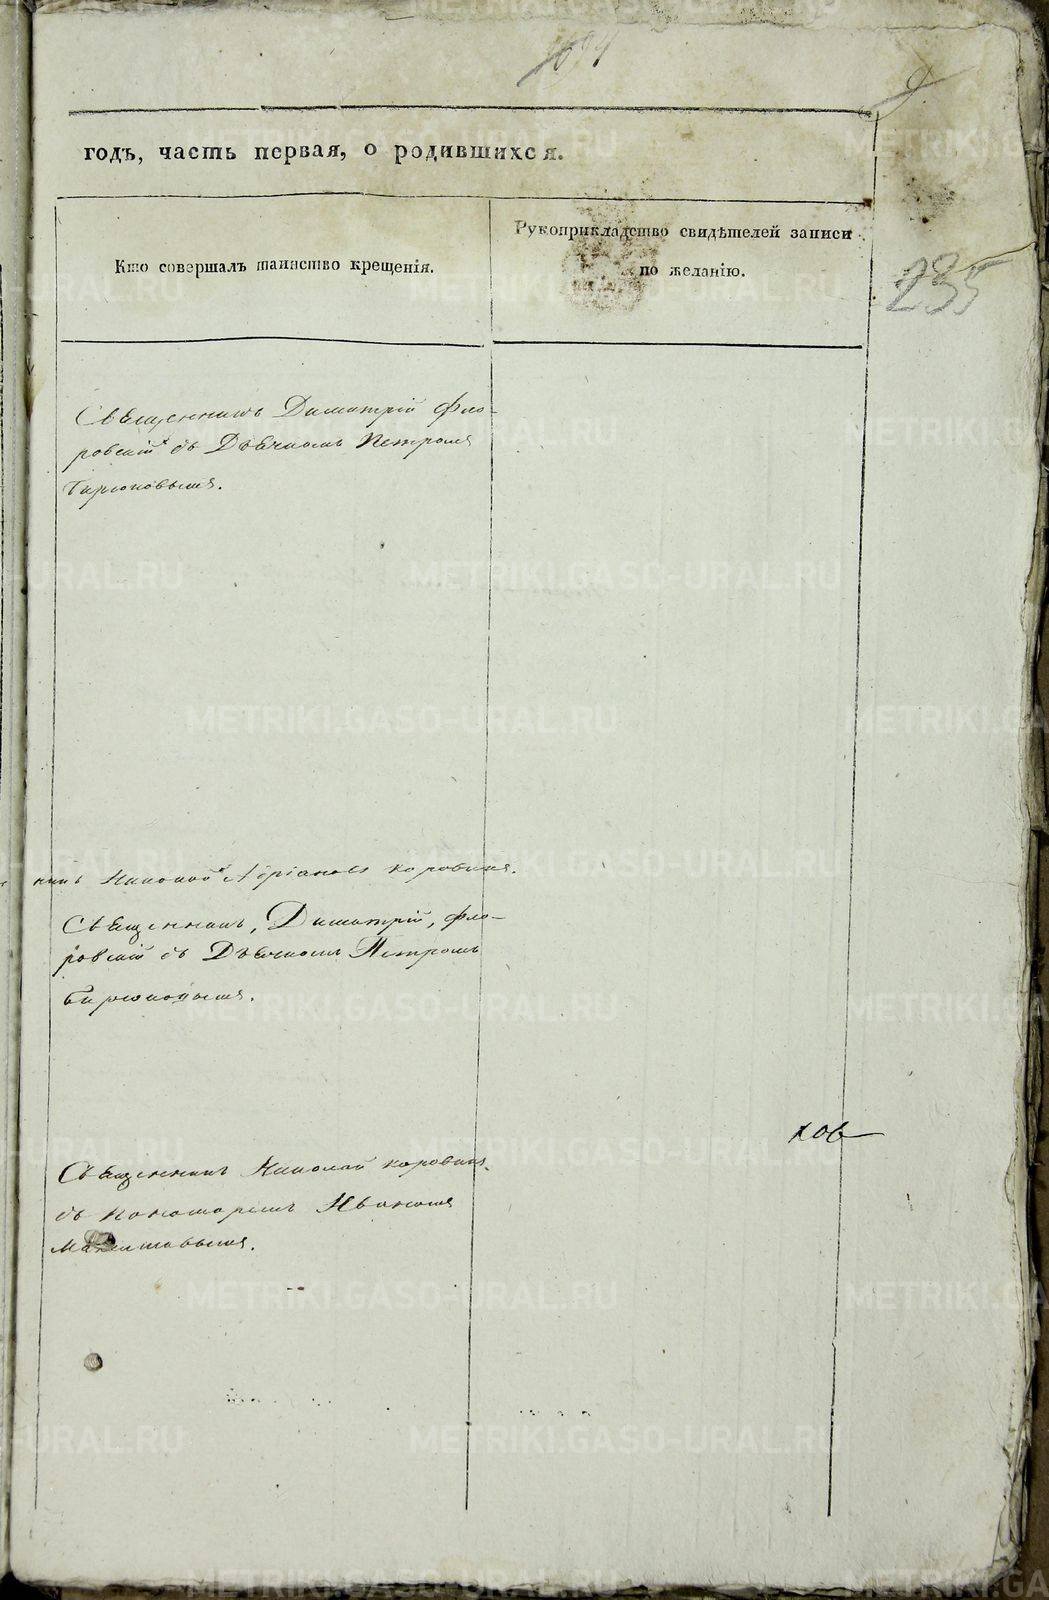 годъ, часть первая, о родившихся.
Кто совершалъ таинство крещенія.
Рукоприкладство свидѣтелей записи
по желанію.
235
Священникъ Димитрій Фло-
ровскій съ Дьячкомъ Петромъ
Бирюковымъ.
Николай Коровинъ.
Священникъ, Димитрій, Фло-
ровскій съ Дьячкомъ Петромъ
Бирюковымъ.
ков
Священникъ Николай Коровинъ
съ пономаремъ Иваномъ
METRIKI.GASO-URAL.RU